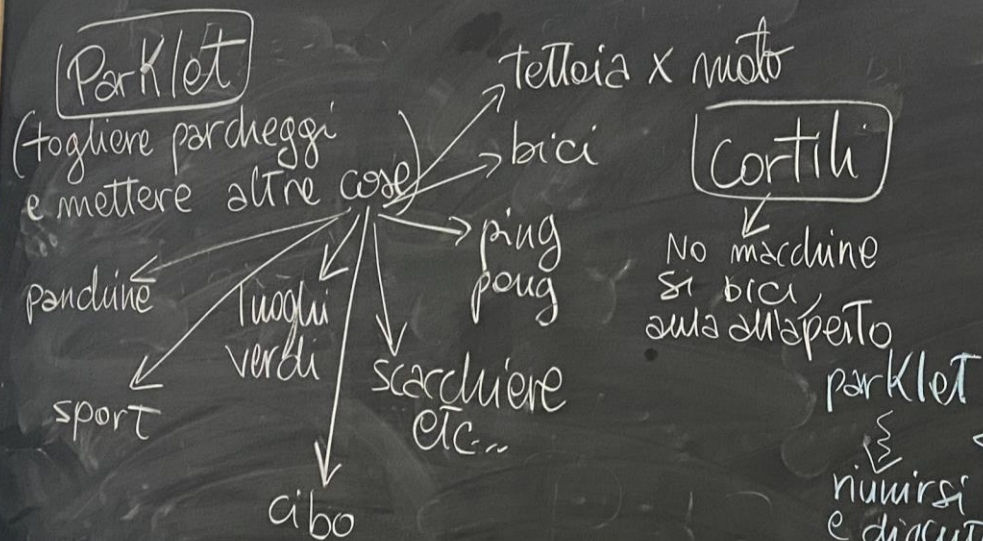 Parklet
(togliere parcheggi
e mettere altre cose)
tettoia x moto
bici
ping
pong
panchine
luoghi
verdi
scacchiere
etc...
sport
cibo
cortili
No macchine
Si bici,
aula all'aperto
parklet
riunirsi
e